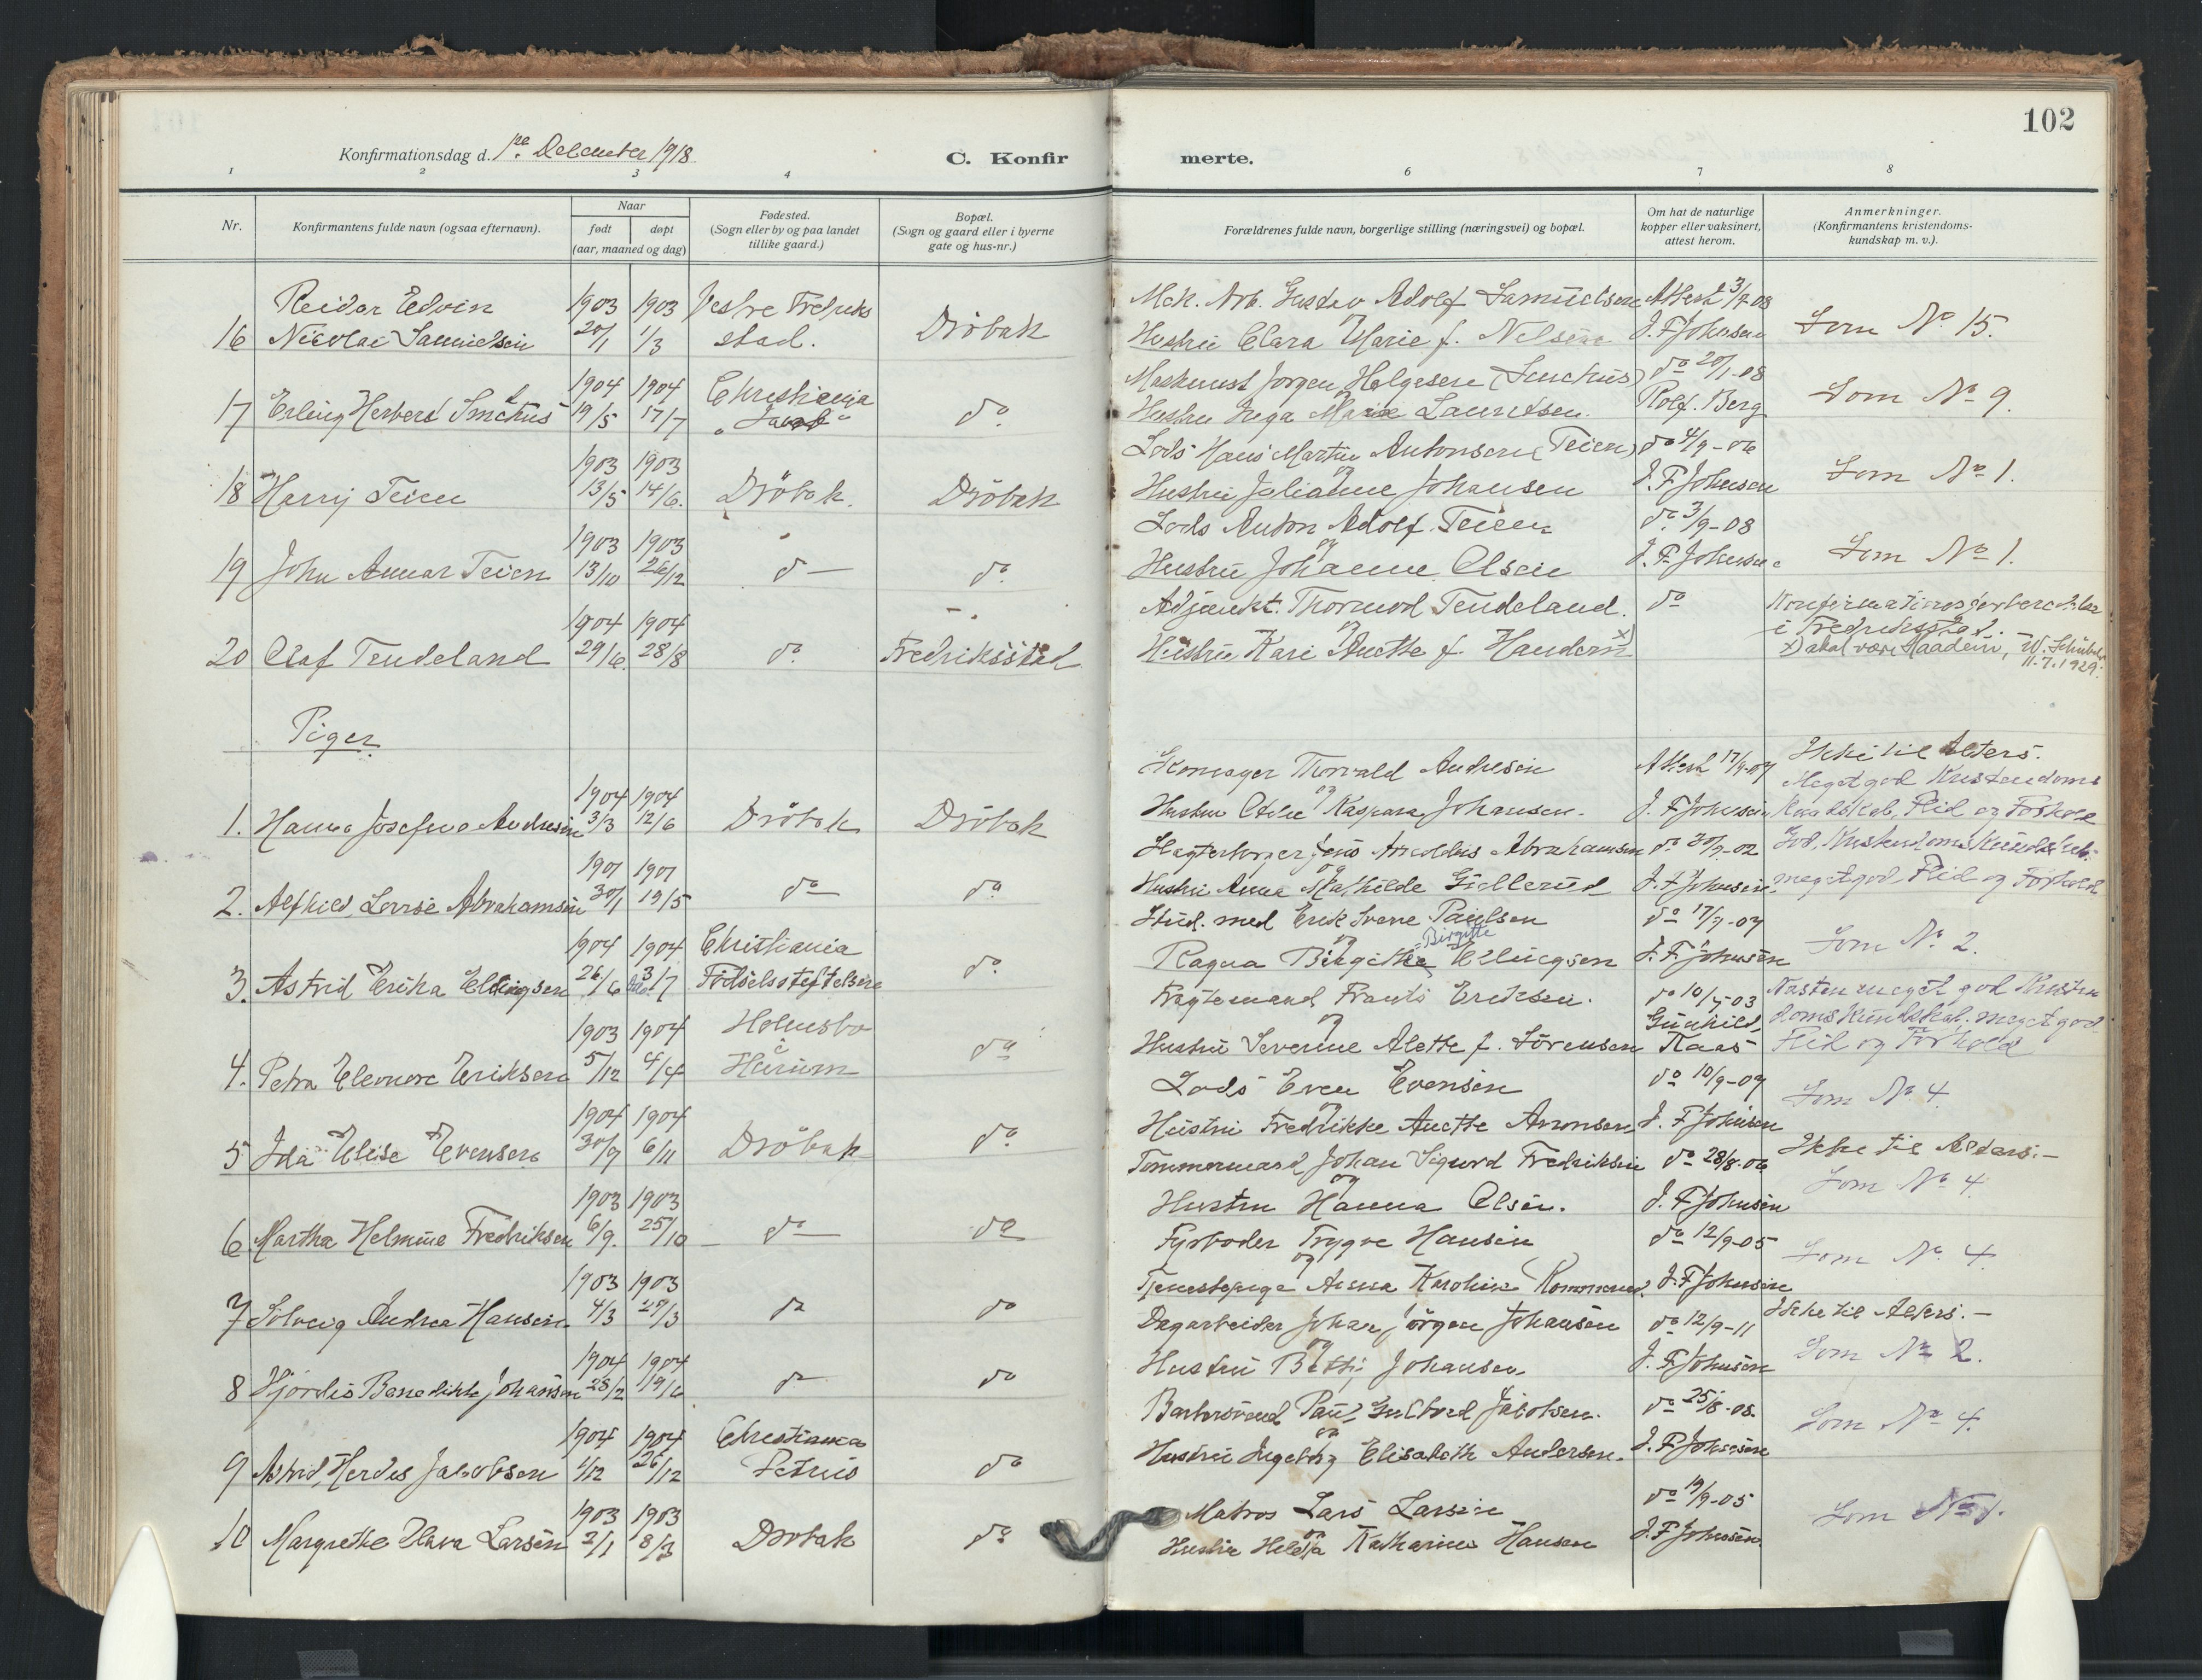 102
Konfirmationsdag d. 1ste December 1918
C. Konfirmerte.
1 2 3 4 6 7 8
Nr.
Konfirmantens fulde navn (ogsaa efternavn).
Naar
født
døpt
(aar, maaned og dag)
Fødested.
(Sogn eller by og paa landet
tillike gaard.)
Bopæl.
(Sogn og gaard eller i byerne
gate og hus-nr.)
Forældrenes fulde navn, borgerlige stilling (næringsvei) og bopæl.
Om hat de naturlige
kopper eller vaksinert,
attest herom.
Anmerkninger.
(Konfirmantens kristendoms-
kundskap m. v.).
Reidar Edvin 1903 1903 Vestre Fredriks Mek. Arb. Gustav Adolf Samuelsen Attest 3/9-08
16 Nicolai Samuelsen 20/1 1/3 stad. Dröbak og Hustru Clara Marie f. Nelsen J. F Johnsen Som No 15.
1904 1904 Christiania Maskinist Jörgen Helgesen (Smehus) do 20/1-08
17 Erling Herbert Smehus 19/5 17/7 "Jacob" do og Hustru Inga Marie Lauritsen. Rolf. Berg Som No 9.
1903 1903 Lods Hans Martin Antonsen (Teien) do 4/9-06
18 Harry Teien 13/5 14/6. Dröbak. Dröbak og Hustru Julianne Johansen J. F Johnsen Som No 1.
1903 1903 Lods Anton Adolf Teien do 3/9-08
19 John Annar Teien 13/10 26/12 do do og Hustru Johanne Olsen J. F. Johnsen Som No 1.
1904 1904 Adjunkt. Thormod Tendeland. do Konfirmationsforberedelse
i Fredriksstad.
20 Olaf Tendeland 29/6. 28/8 do Fredriksstad og Hustru Kari Anette f. Haudern x)
x) skal være Haadem, W. Schübeler
11.7.1929.
Piger
Skomager Thorvald Andresen Attest 17/9-07 Ikke til Alters.
1904 1904 Meget god Kristendoms
1. Hanna Josefine Andresen 3/3 12/6 Dröbak Dröbak og Hustru Kaspara Johansen. J. F Johnsen Kundskab, Flid og Forhold
1901 1901 Jens Arnoldus Abrahamsen do 30/9-02 God. Kristendoms Kundskab.
2. Alfhild Lovise Abrahamsen 30/1 19/5 do do og Hustru Anna Mathilde Gjellerud J. F Johnsen meget god, Flid og Forhold
1904 1904 Christiania Stud. med Erik Sverre Paulsen do 17/9-07
3. Astrid Erika Ellingsen 26/6 3/7 Födselsstiftelsen do og Ragna Birgitte "Birgitte Ellingsen J. F Johnsen Som No 2.
1903 1904 Holmsbo Fragtemand Frants Eriksen. do 10/7-03 Næsten meget god Kristen
4. Petra Eleonore Eriksen 5/12 4/4 Hurum do og Hustru Severine Alette f. Sörensen Gunhild Kaas doms Kundskab. meget god
Flid og Forhold
1904 1904 Lods Even Evensen do 10/9-07
5 Ida Elise Evensen 30/9 6/11 Dröbak do og Hustru Fredrikke Anette Aronsen J. F Johnsen Som No 4.
1903 1903 Tömmermand Johan Sigurd Fredriksen do 28/8-06 Ikke til Alters.—
6 Martha Helmine Fredriksen 6/9. 25/10 do do og Hustru Hanna Olsen. J. F Johnsen Som No 4.
1903 1903 Fyrböder Trygve Hansen do 12/9-05
7 Solveig Andrea Hansen 4/3 29/3 do do og Tjenestepige Anna Karoline J. F Johnsen Som No 4.
1904 1904 Dagarbeider Johan Jörgen Johansen do 12/9-11 Ikke til Alters.—
8 Hjördis Benedikte Johansen 28/2 19/6 do do og Hustru Betty Johansen J. F Johnsen Som No 2.
1904 1904 Christiania Barbersvend Paul Gulbrand Jacobsen. do 25/8-08.
9 Astrid Herdis Jacobsen 1/12 26/12 Petrus do og Hustru Ingeborg Elisabeth Andersen. J. F Johnsen Som No 4.
1903 1903 Matros Lars Larsen do 19/9-05
10 Margrethe Larsen 2/1 8/3 Dröbak do og Hustru Helga Katharina Hansen J. F Johnsen. Som No 1.